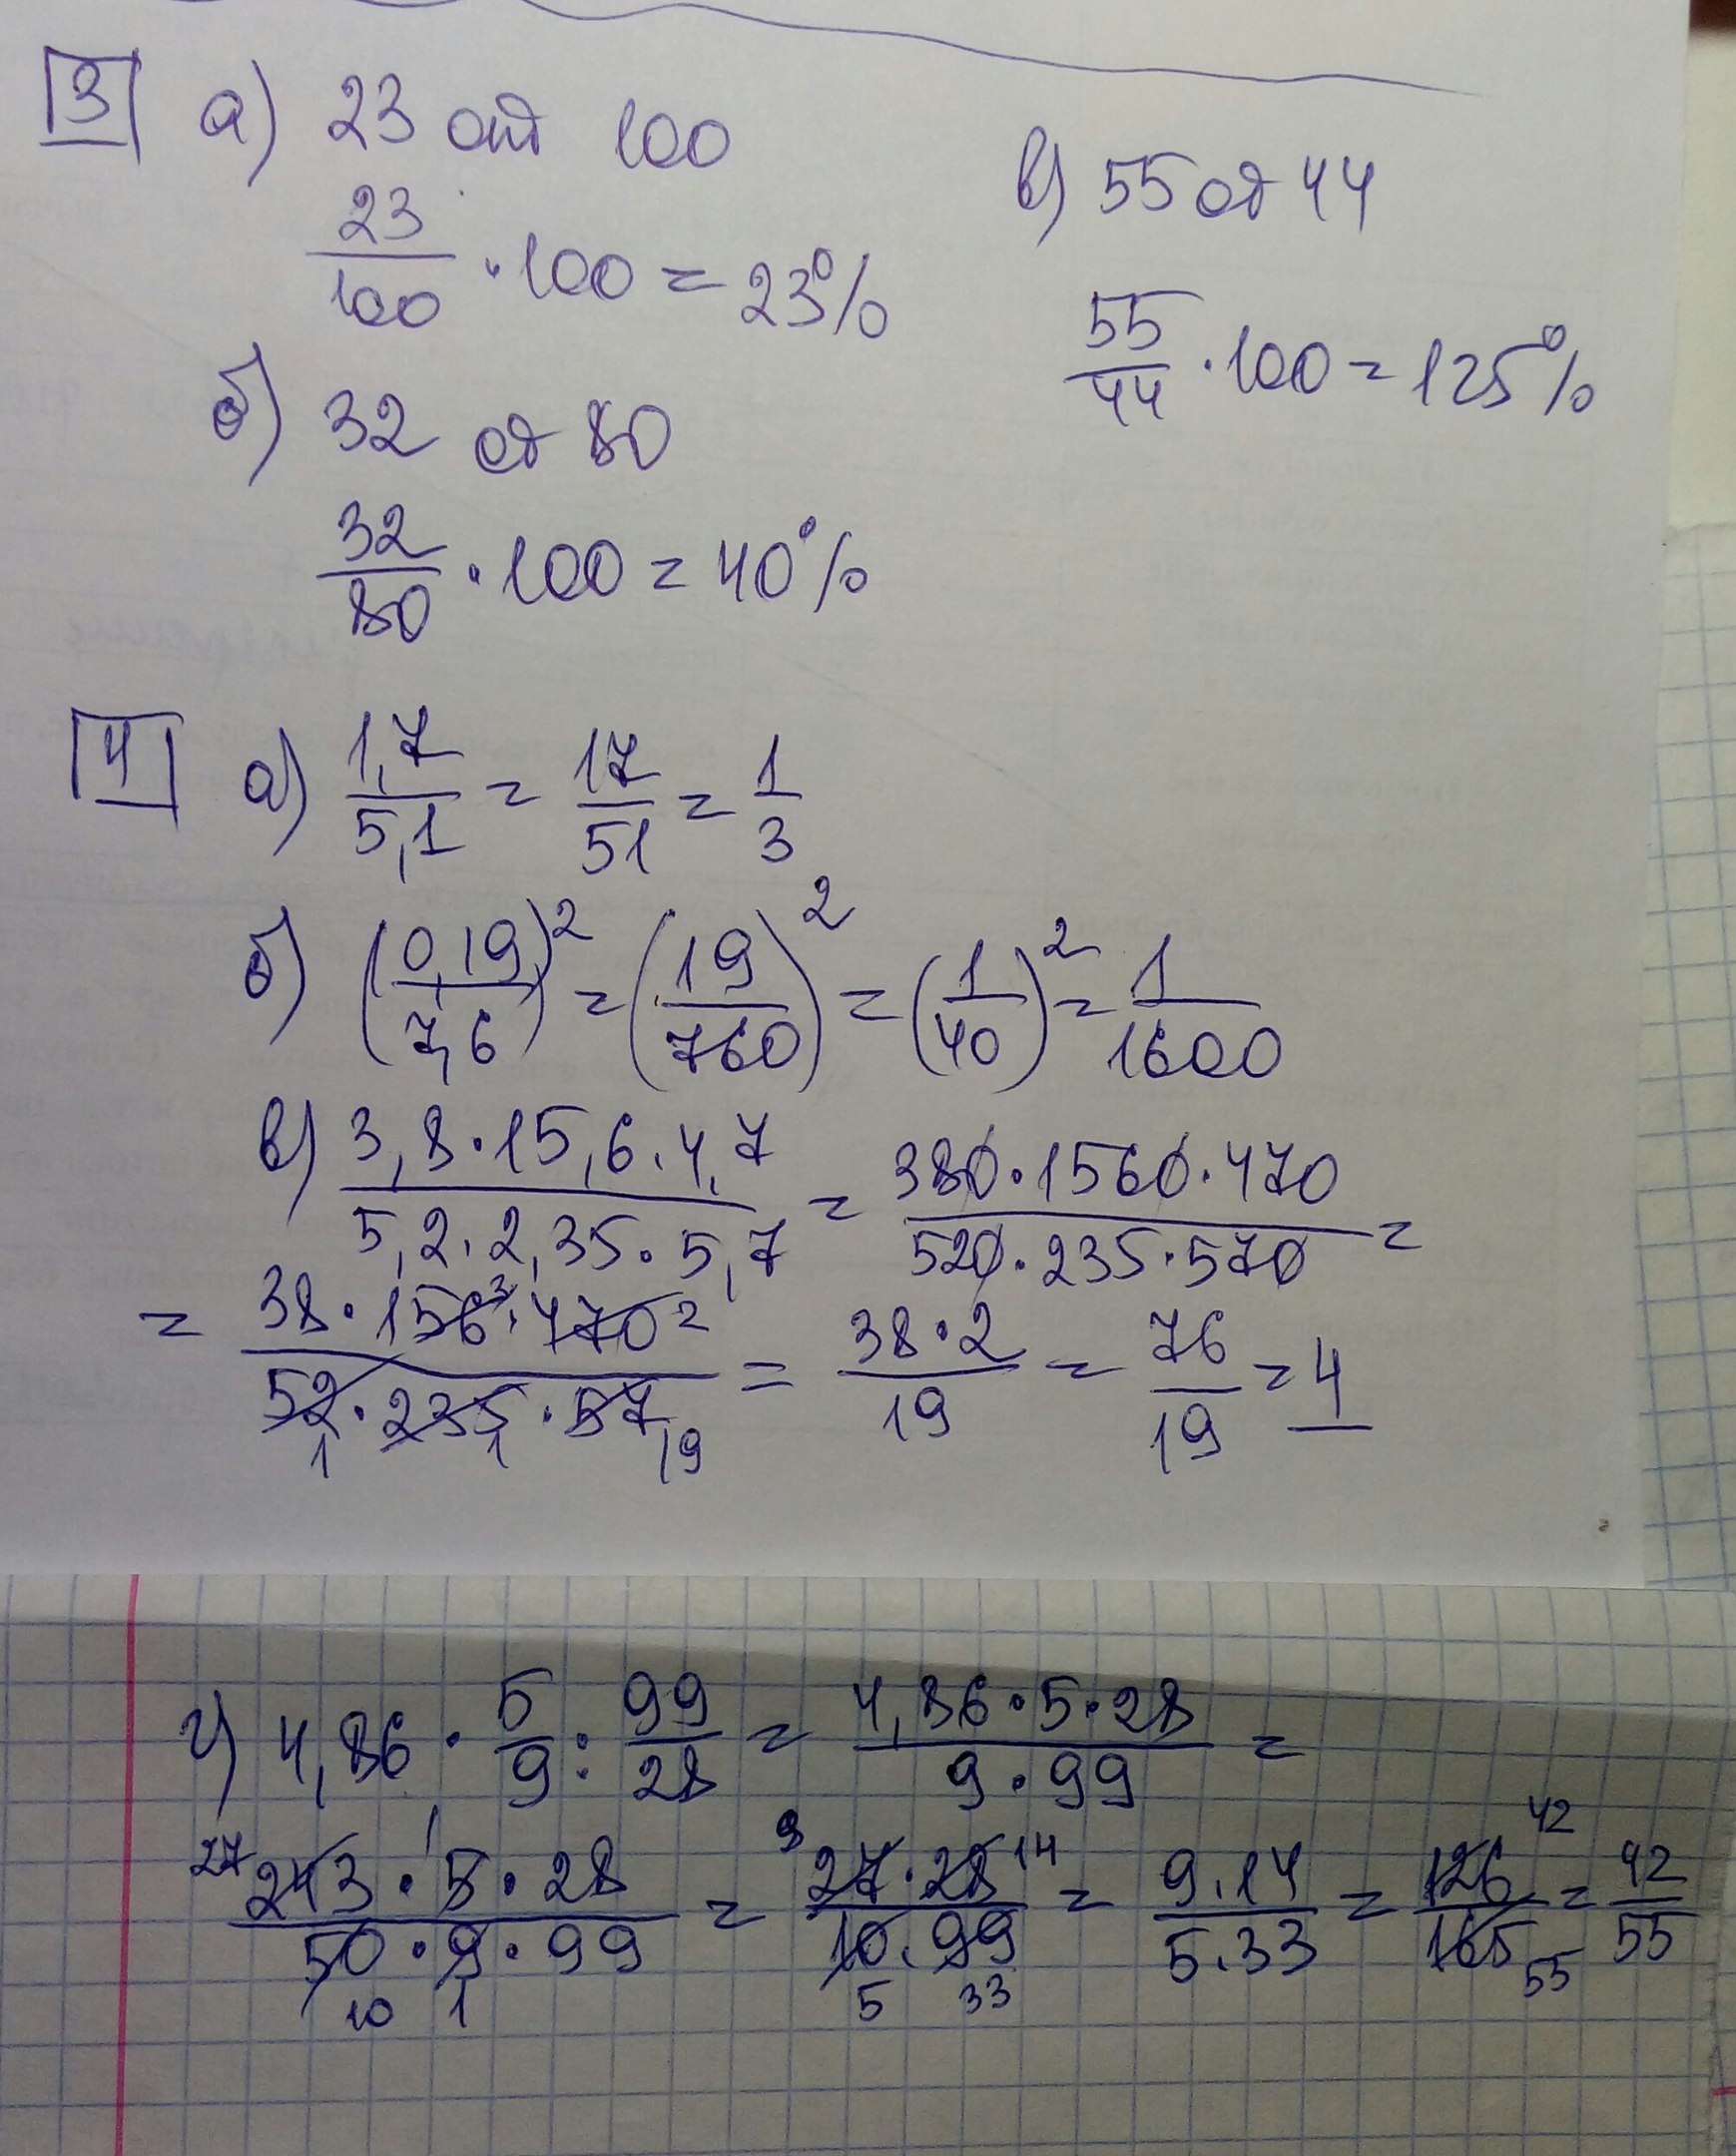 3 а) 23 от 100
23/100 · 100 = 23%
б) 32 от 80
32/80 · 100 = 40%
в) 55 от 44
55/44 · 100 = 125%
4 а) 1,7/5,1 = 17/51 = 1/3
б) (0,19/7,6)² = (19/760)² = (1/40)² = 1/1600
в) 3,8·15,6·4,7/5,2·2,35·5,7 = 380·1560·470/520·235·570 =
= 38·156³·470²/52₁·235₁·57₁₉ = 38·2/19 = 76/19 = 4
г) 4,86 · 5/9 : 99/28 = 4,86·5·28/9·99 =
²⁷243·¹5·28/50₁₀·9₁·99 = ⁹27·28¹⁴/10₅·99₃₃ = 9·14/5·33 = 126⁴²/165₅₅ = 42/55